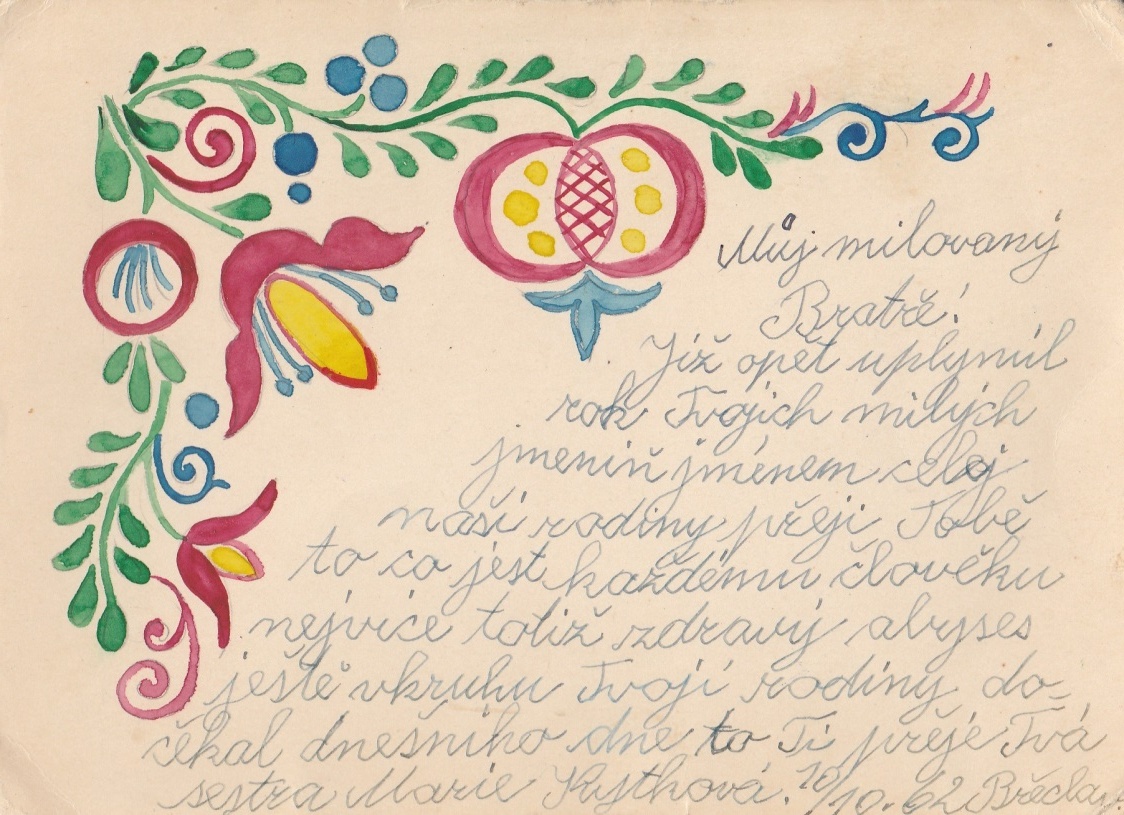 Můj milovaný
Bratře!
Již opět uplynul
rok Tvojích milých
jmenin jménem celej
naší rodiny přeji Tobě
to co jest každému člověku
nejvíce totiž zdravý abyses
ještě vkruhu Tvojí rodiny do-
čekal dnešního dne to Ti přeje Tvá
sestra Marie 10/10.62 Břeclav.